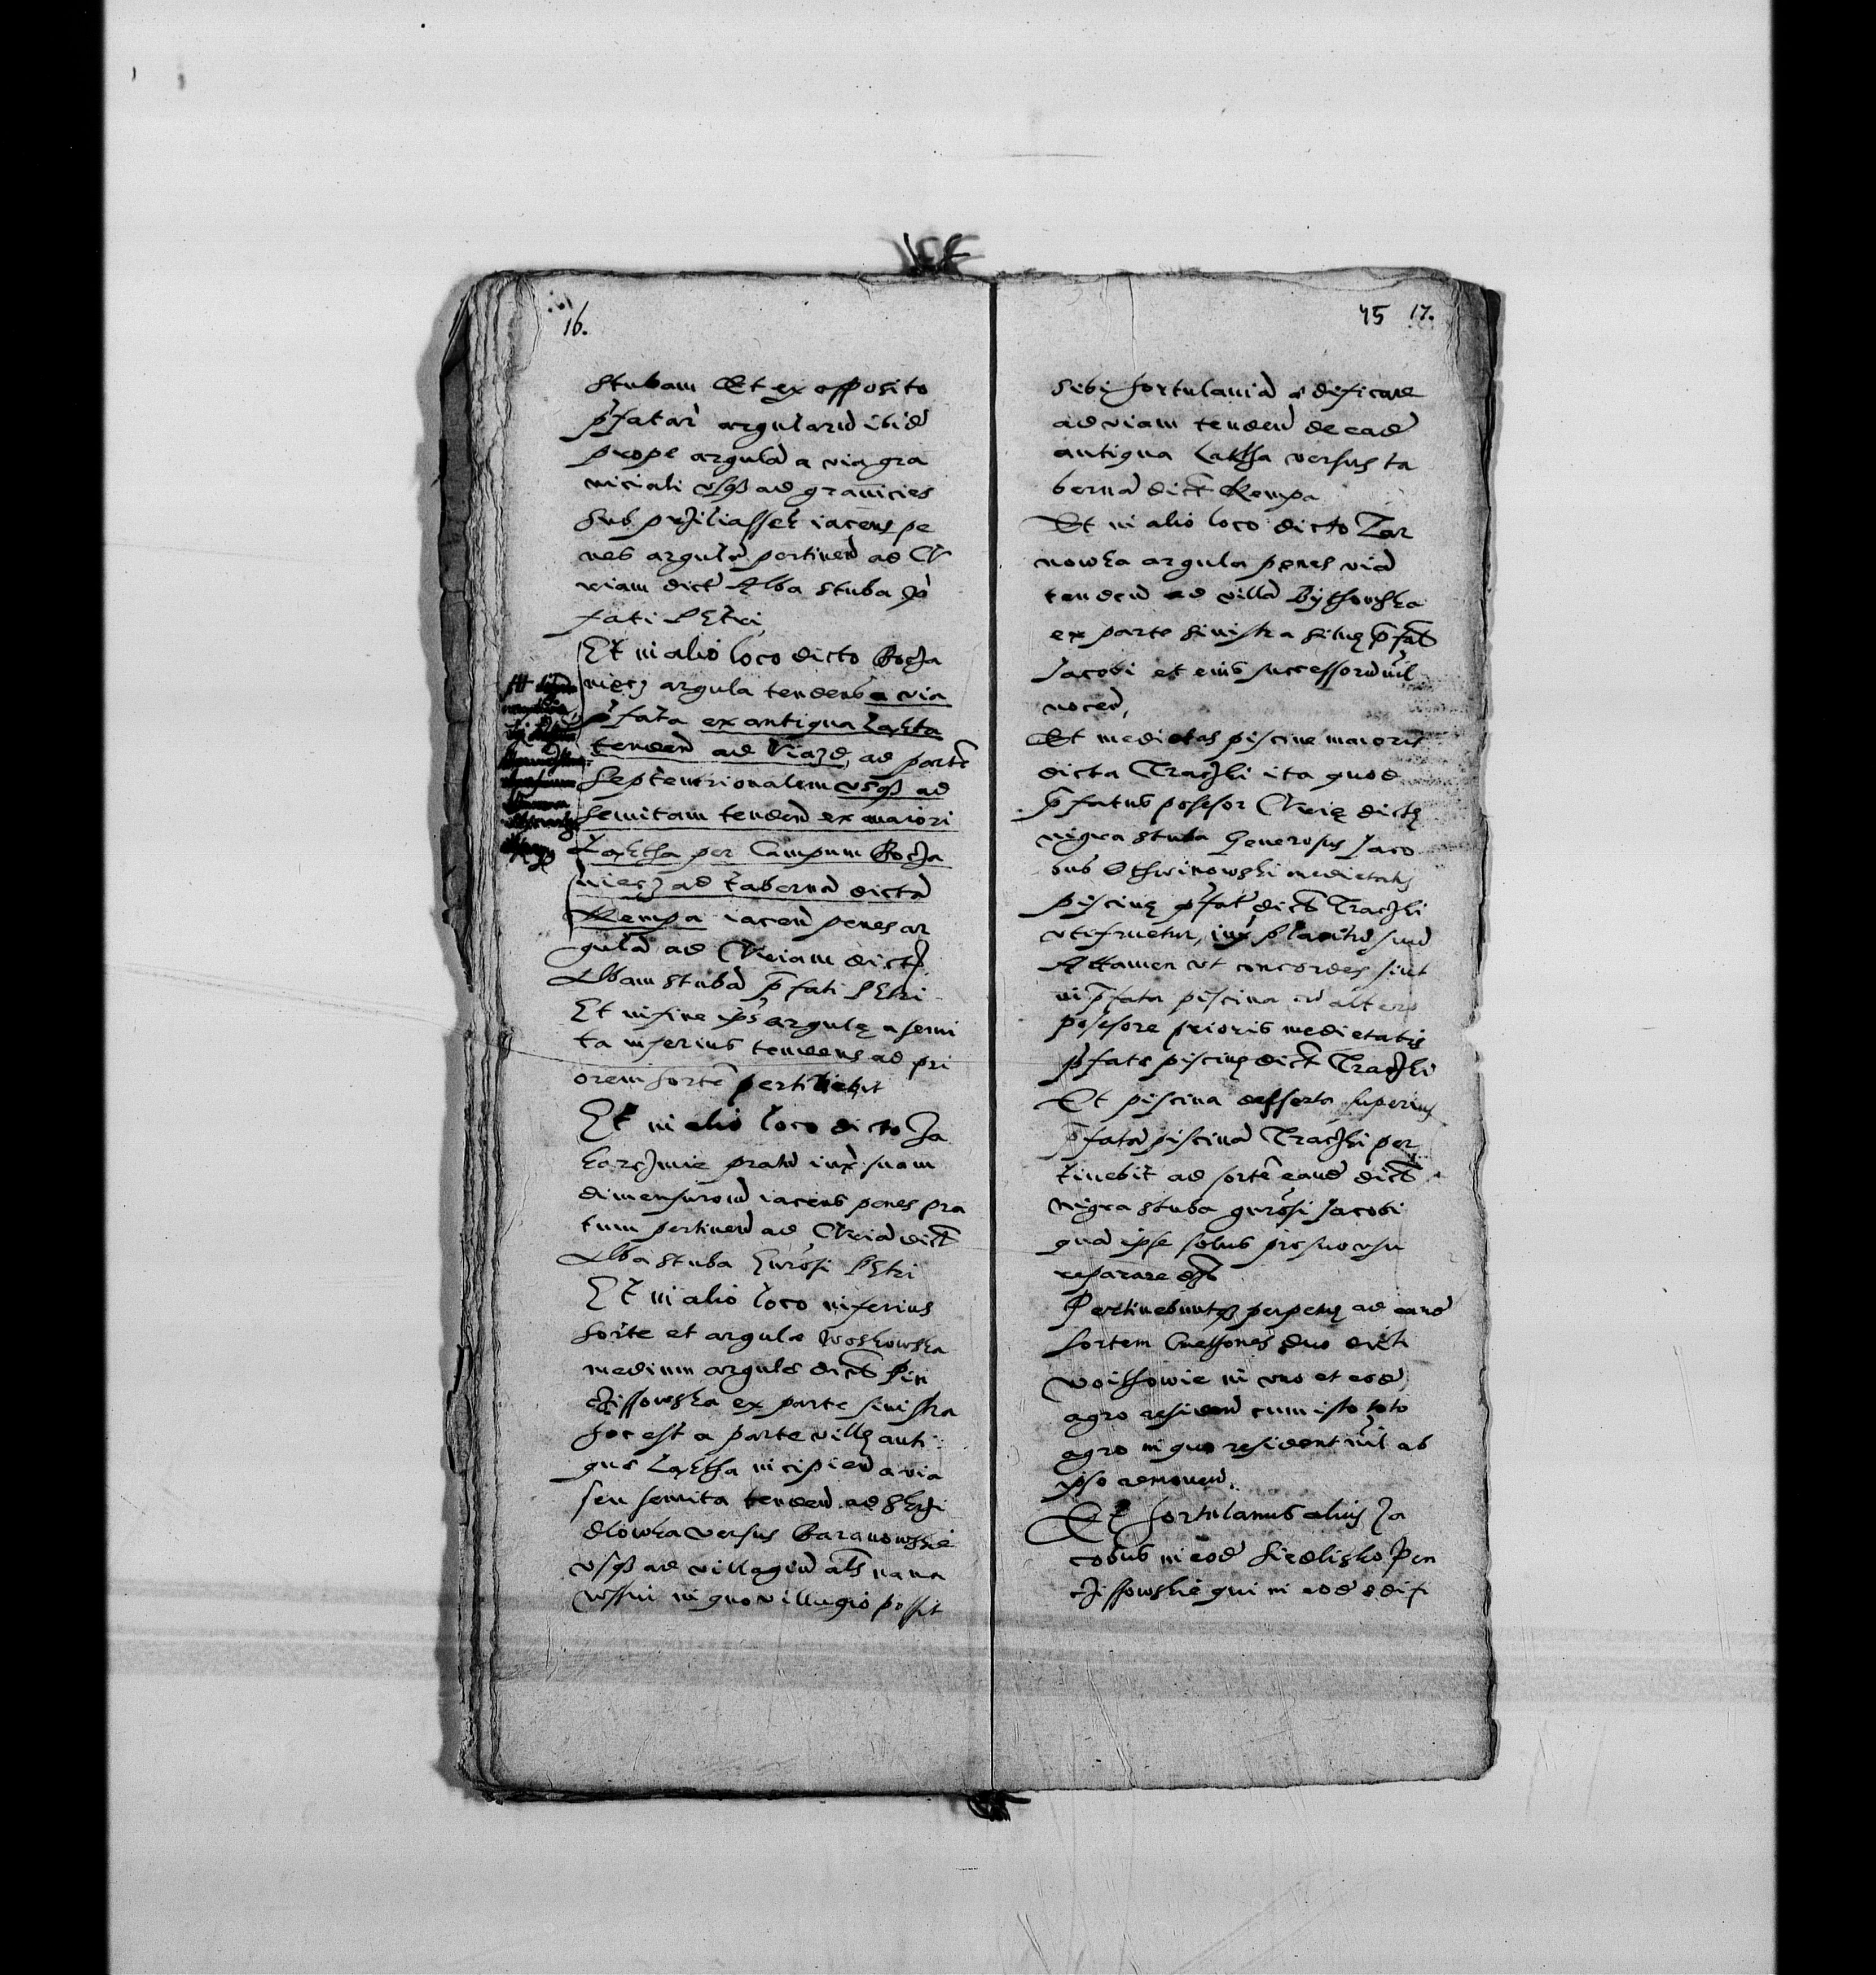 16.
stubam Et ex opposito
pfatar argularu ibid
prope argula a via gra
niciali usq ad granicies
sub iacens pe
nes argula pertinen ad Cu
riam dict Alba stuba p
fati Petri
Et in alio loco dicto Rocza
niecz argula tendens a via
pfata ex antiqua Laktha
tenden ad Viazd, ad parte
Septemtrionalem usq ad
semitam tenden ex maiori
Laktha per Campum Rocza
niecz ad taberna dicta
Kempa iacen penes ar
gula ad Curiam dict
Albam stuba pfati Petri
Et in fine ips argulę a semi
ta inferius tendens ad pri
orem sorte pertinebit
Et in alio loco dicto Za
karczmie pratu iux suam
dimensuronem iacens penes pra
tum pertinen ad Curia dict
Alba stuba Gnrosi Petri
Et in alio loco inferius
sorte et argula Woskowska
medium argule dict Pin
czissowska ex parte sinistra
hoc est a parte villę anti
que Laktha incipien a via
seu semita tenden ad
versus Baranowskie
usq ad villagiu als na na
wssui in quo villagio possit
45 17.
sibi hortulania edificare
ad viam tenden de ead
antiqua Laktha versus ta
berna dict Kempa
Et in alio loco dicto Tar
nowka argula penes via
tenden ad villa Bythowska
ex parte sinistra silvę pfat
Jacobi et eius successoru nil
nocen,
Et medietas piscine maioris
dicta Traczki ita quod
pfatus posesor Curię dictę
nigra stuba Generosus Jaco
bus Othwinowski medietatis
piscinę pfat dict Traczki
utifruetur, iux placitu suu
Attamen ut concordes sint
in pfata piscina cu altero
posesore prioris medietatis
pfate piscinę dict Traczki
Et piscina desserta superius
pfata piscina Traczki per
tinebit ad sorte eand dict
nigra stuba gnrosi Jacobi
qua ipse solus pro suo usu
reparare
Pertinebuntq perpetuę ad eand
sortem Cmethones duo dicti
Woithowie in uno et eod
agro residen cum isto toto
agro in quo resident nil ab
ipso removen.
Et hortulanus alius Ja
cobus in eod siedlisko Pen
czissowskie qui in eod edifi